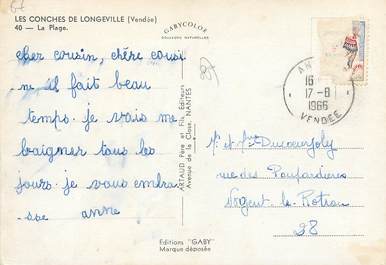 LES CONCHES DE LONGEVILLE (Vendée)
40 — La Plage.
GABYCOLOR
COULEURS NATURELLES
cher cousin, chère cousi
ne il fait beau
temps. je vais me
baigner tous les
jours. je vous embra
sse anne
ARTAUD Père et Fils, Éditeurs
Avenue de la Close, NANTES
Editions "GABY"
Marque déposée
AN
16
17-8
1966
VENDEE
Mr et Mme Ducoeurjoly
rue des Poupardières
Nogent le Rotrou
28